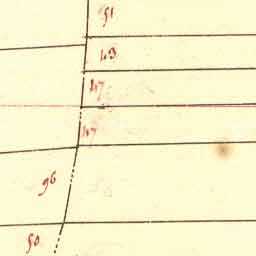 51
43
47
47
96
50